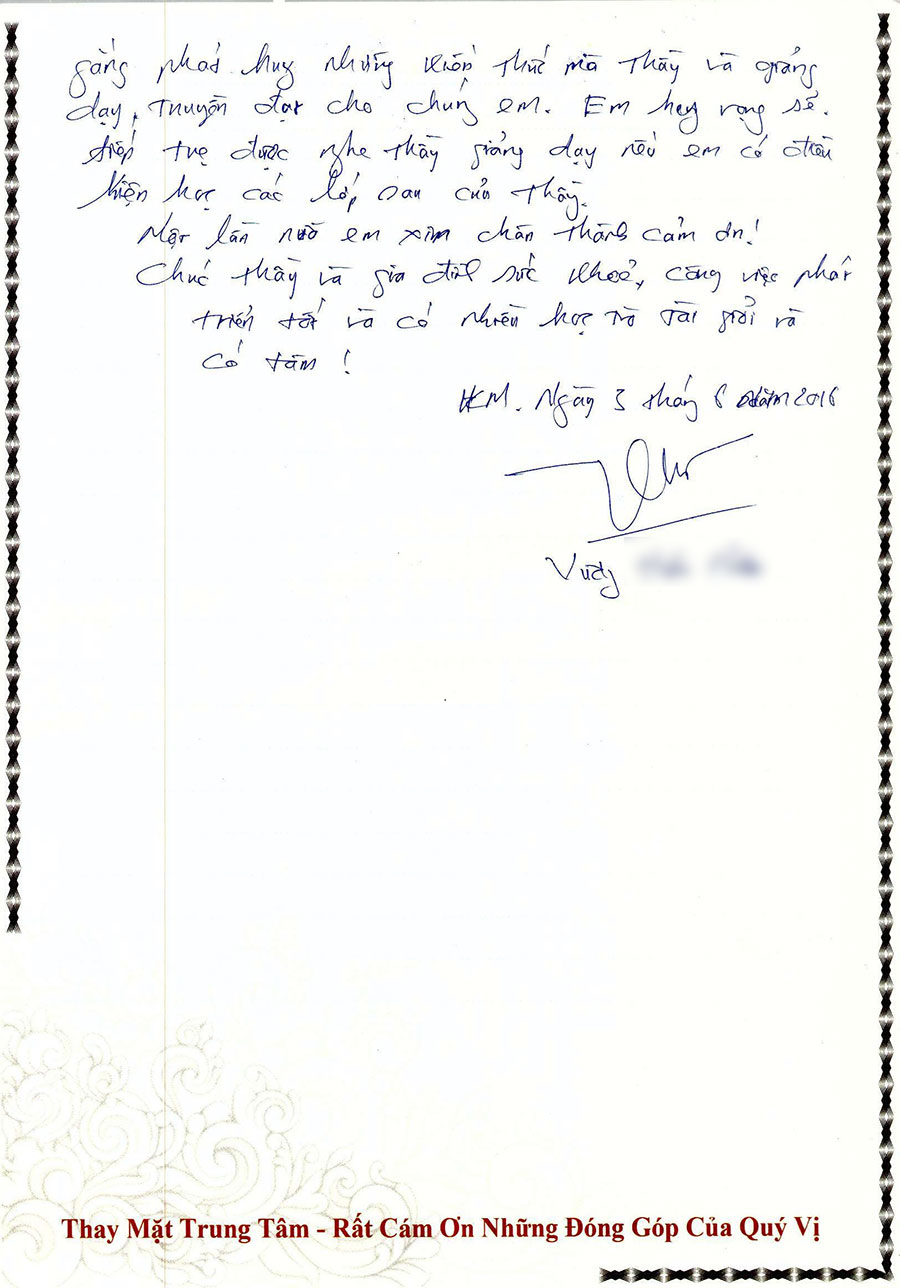 gắng phát huy những kiến thức mà thầy và giảng
dạy, truyền đạt cho chúng em. Em hy vọng sẽ.
tiếp tục được nghe thầy giảng dạy nếu em có điều
kiện học các lớp sau của thầy.
Một lần nữa em xin chân thành cảm ơn!
Chúc thầy và gia đình sức khoẻ, công việc phát
triển tốt và có nhiều học trò tài giỏi và
có tâm!
HCM. Ngày 3 tháng 6 năm 2016
Thay Mặt Trung Tâm - Rất Cám Ơn Những Đóng Góp Của Quý Vị